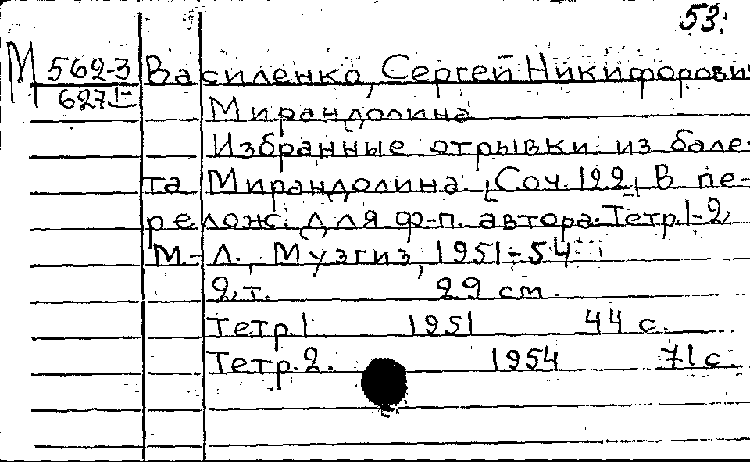 53.
М 562-3 Василенко, Сергей Никифорови
627 Мирандолина
Избранные отрывки из бале-
та Мирандолина. [Соч. 122] В пе-
релож. для ф-п. автора. Тетр. 1-2
М.-Л., Музгиз, 1951-54
2 т. 29 см.
Тетр 1 1951 44 с.
Тетр. 2. 1954 71 с